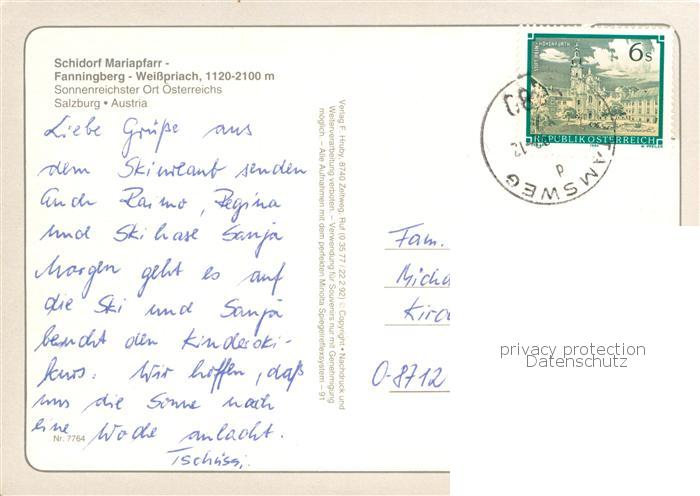 Schidorf Mariapfarr -
Fanningberg - Weißpriach, 1120-2100 m
Sonnenreichster Ort Österreichs
Salzburg • Austria
Liebe Grüße aus
dem Skiurlaub senden
Euch Raimo, Regina
und Skihase Sanja
Morgen geht es auf
die Ski und Sanja
besucht den Kinderski-
kurs. Wir hoffen, daß
uns die Sonne noch
eine Woche anlacht.
Tschüssi.
Nr. 7764
Verlag F. Hruby, 8740 Zeltweg, Ruf (0 35 77 / 22 2 92) © Copyright • Nachdruck und
Weiterverarbeitung verboten. – Verwendung für Souvenirs nur mit Genehmigung
möglich. – Alle Aufnahmen mit dem perfekten Minolta Spiegelreflexsystem – 91
STIFT HOHENFURTH
6s
REPUBLIK ÖSTERREICH
TAMSWEG
Fam.
Micha
Kirc
O-8712
privacy protection
Datenschutz